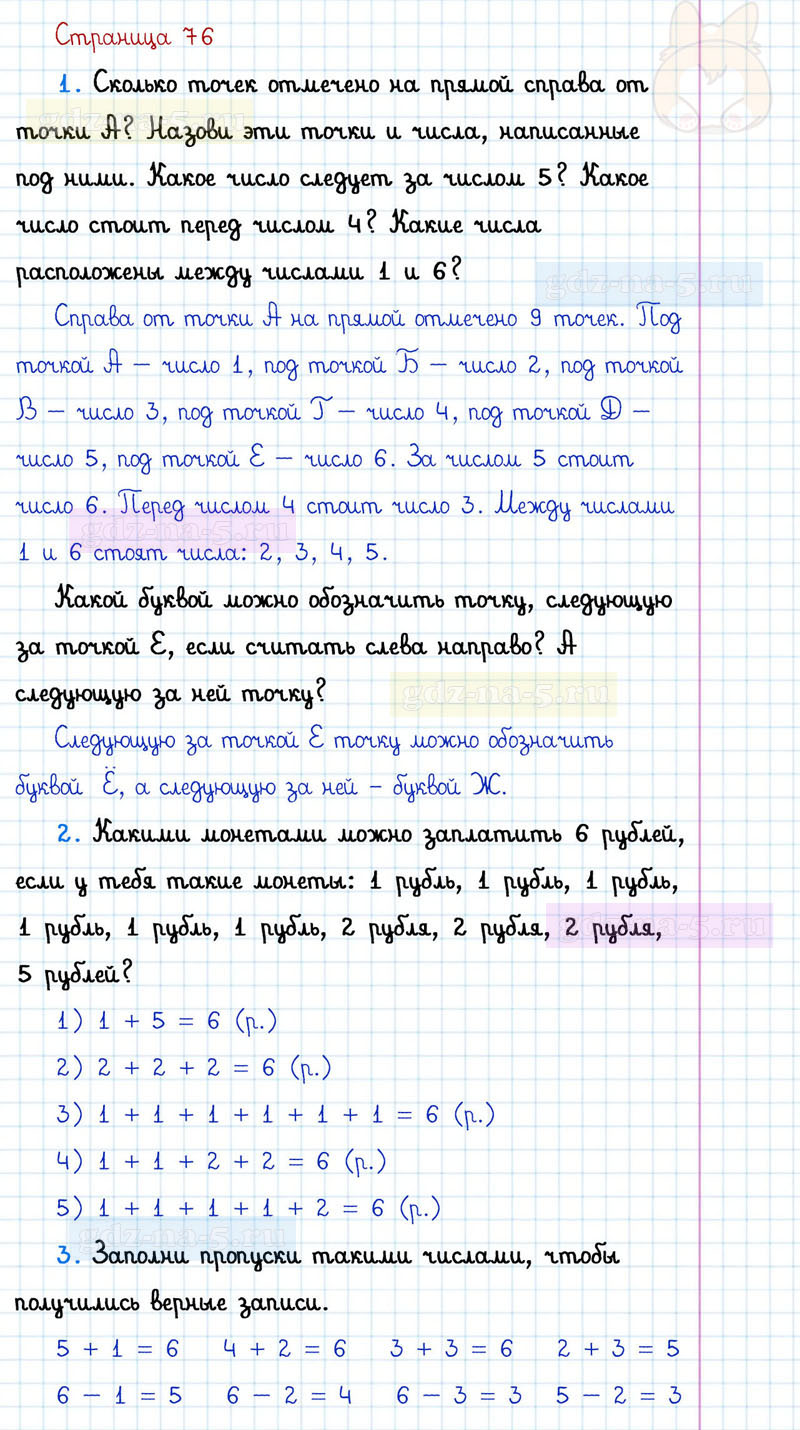 Страница 76
1. Сколько точек отмечено на прямой справа от
точки А? Назови эти точки и числа, написанные
под ними. Какое число следует за числом 5? Какое
число стоит перед числом 4? Какие числа
расположены между числами 1 и 6?
gdz-na-5.ru
gdz-na-5.ru
Справа от точки А на прямой отмечено 9 точек. Под
точкой А — число 1, под точкой Б — число 2, под точкой
В — число 3, под точкой Г — число 4, под точкой Д —
число 5, под точкой Е — число 6. За числом 5 стоит
число 6. Перед числом 4 стоит число 3. Между числами
1 и 6 стоят числа: 2, 3, 4, 5.
gdz-na-5.ru
Какой буквой можно обозначить точку, следующую
за точкой Е, если считать слева направо? А
следующую за ней точку?
gdz-na-5.ru
Следующую за точкой Е точку можно обозначить
буквой Ё, а следующую за ней – буквой Ж.
2. Какими монетами можно заплатить 6 рублей,
если у тебя такие монеты: 1 рубль, 1 рубль, 1 рубль,
1 рубль, 1 рубль, 1 рубль, 2 рубля, 2 рубля, 2 рубля,
5 рублей?
gdz-na-5.ru
1) 1 + 5 = 6 (р.)
2) 2 + 2 + 2 = 6 (р.)
3) 1 + 1 + 1 + 1 + 1 + 1 = 6 (р.)
4) 1 + 1 + 2 + 2 = 6 (р.)
5) 1 + 1 + 1 + 1 + 2 = 6 (р.)
gdz-na-5.ru
3. Заполни пропуски такими числами, чтобы
получились верные записи.
5 + 1 = 6 4 + 2 = 6 3 + 3 = 6 2 + 3 = 5
6 – 1 = 5 6 – 2 = 4 6 – 3 = 3 5 – 2 = 3